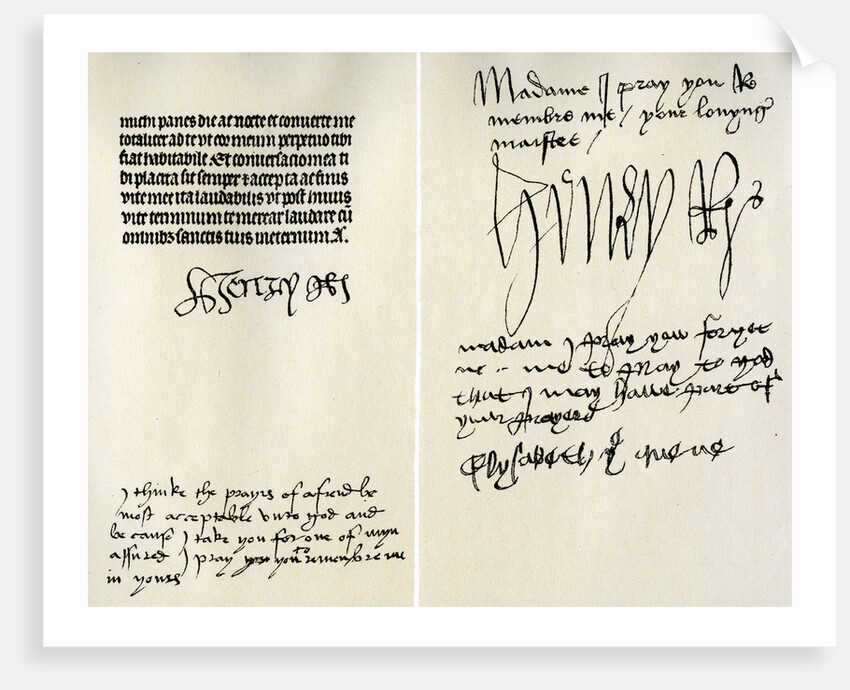 michi panes die ac nocte et conuerte me
totaliter ad te vt cor meum perpetuo tibi
fiat habitabile. Et conuersacio mea ti
bi placita sit semper & accepta ac finis
vite mee ita laudabilis vt post huius
vite terminum te merear laudare cū
omnibꝫ sanctis tuis ineternum. A.
Henry
I thinke the prayrs of a frend be
most acceptable vnto god and
be cause I take you for one of myn
assured I pray you to remembre me
in yours
Madame I pray you Re
membre me / your louyng
maistre /
Henry R
madam I pray you forget
not me to pray to god
that I may haue part of
your prayers
Elysabeth ye quene